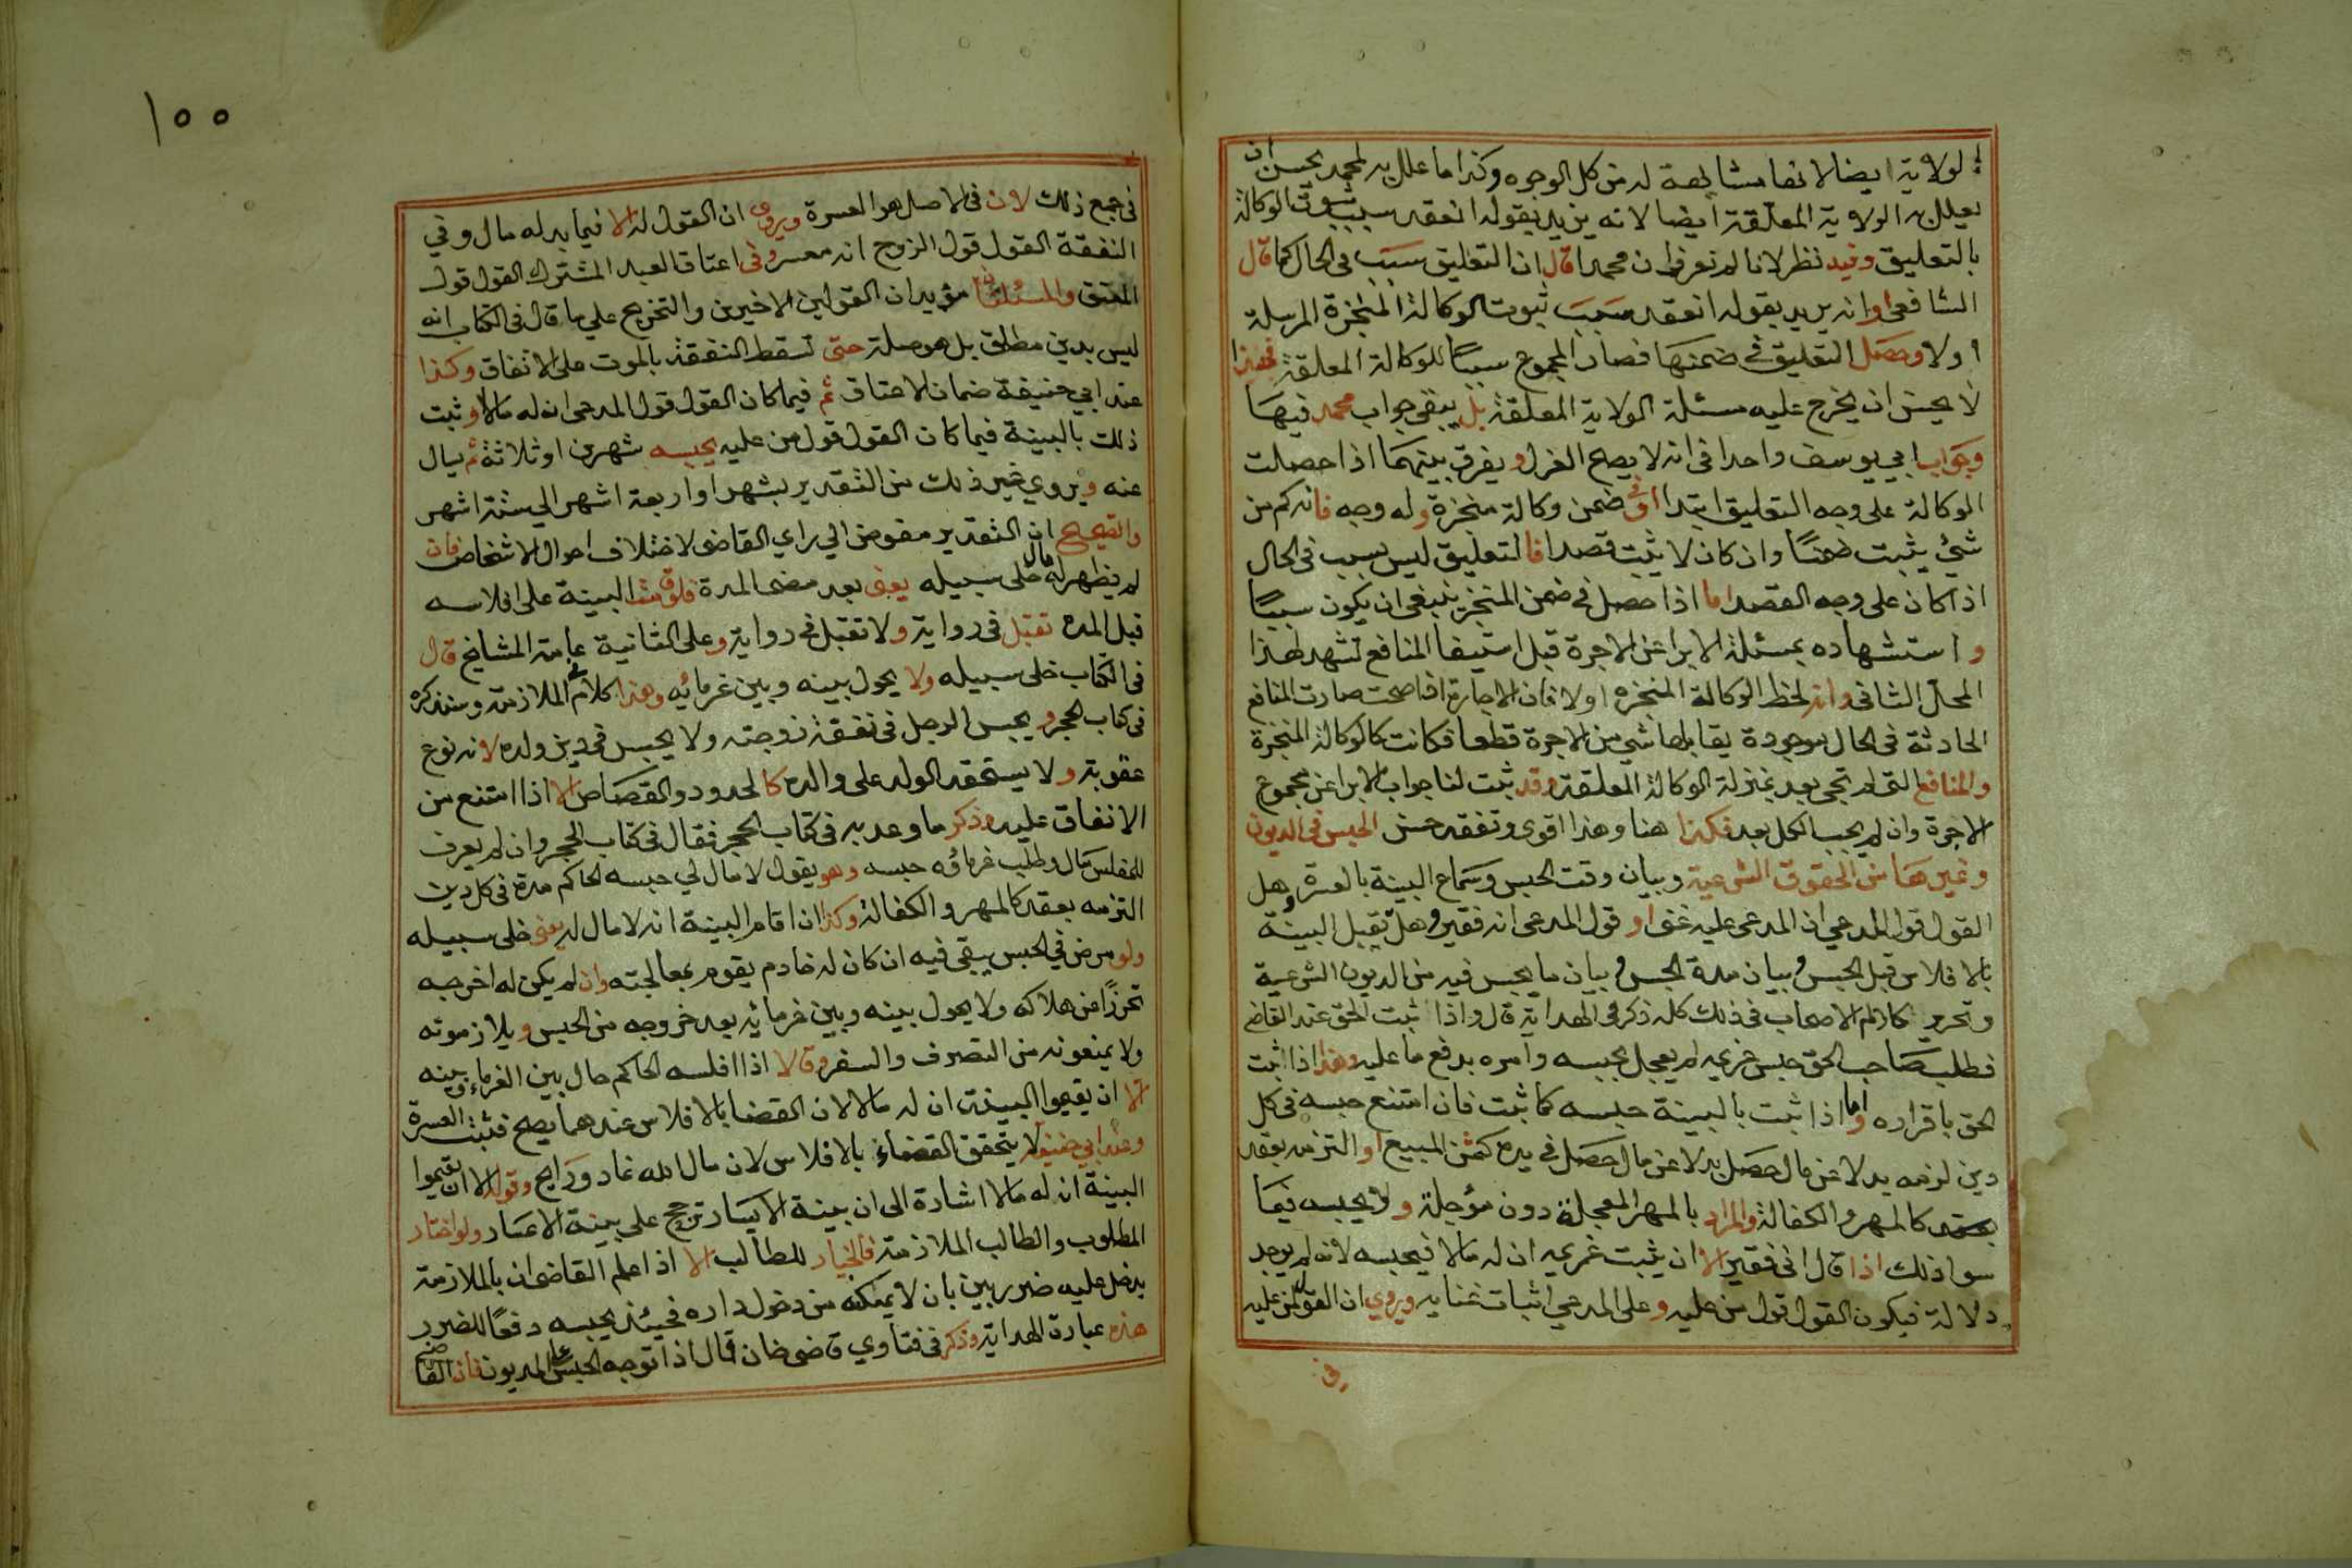 الولاية ايضا لانها مشابهة له من كل الوجوه وكذا ما علل به لمحمد يحسن ان
يعلل به الولاية المعلقة ايضا لانه يزيد بقوله انعقد سبب ثبوت الوكالة
بالتعليق وفيه نظر لانا لم نعرف ان محمدا قال ان التعليق سبب في الحال كما قال
الشافعي او انه يريد بقوله انعقد سبب ثبوت الوكالة المنجزة المرسلة
اولا وحصل التعليق في ضمنها فصار المجموع سببًا للوكالة المعلقة فهذا
لا يحسن ان يخرج عليه مسئلة الولاية المعلقة بل يبقى جواب محمد فيها
وجواب ابي يوسف واحدا في انه لا يصح العزل ويفرق بينهما اذا حصلت
الوكالة على وجه التعليق ابتدا او في ضمن وكالة منجزة وله وجه فانه كم من
شيء يثبت ضمنًا وان كان لا يثبت قصدا فالتعليق ليس بسبب في الحال
اذا كان على وجه القصد اما اذا حصل في ضمن المنجز ينبغي ان يكون سببًا
واستشهاده بمسئلة الابرا عن الاجرة قبل استيفا المنافع تشهد لهذا
المحال الثاني وانه لحظ الوكالة المنجزه اولا فان الاجارة اذا صحت صارت المنافع
الحادثة في الحال موجودة يقابلها شي من الاجرة قطعا فكانت كالوكالة المنجزة
والمنافع التي لم تجي بعد بمنزلة الوكالة المعلقة وقد ثبت لنا جواب الابرا عن مجموع
الاجرة وان لم يجب الكل بعد فكذا هنا وهذا اقوى وتفقه حسن الحبس في الديون
وغيرها من الحقوق الشرعية وبيان وقت الحبس وسماع البينة بالعسرة وهل
القول قول المدعي ان المدعى عليه غني او قول المدعى انه فقير وهل تقبل البينة
بالافلاس قبل الحبس وبيان مدة الحبس وبيان ما يحبس فيه من الديون الشرعية
وتحرير كلام الاصحاب في ذلك كله ذكر في الهداية قال واذا ثبت الحق عند القاضي
فطلب صاحب الحق حبس غريمه لم يعجل بحبسه وامره بدفع ما عليه وهذا اذا ثبت
الحق باقراره واما اذا ثبت بالبينة حبسه كما ثبت فان امتنع حبسه في كل
دين لزمه بدلا عن مال حصل بدلا عن مال حصل في يده كثمن المبيع او التزمه بعقد
بعقد كالمهر والكفالة والمراد بالمهر المعجلة دون مؤجلة ولا يحبسه فيما
سوا ذلك اذا قال اني فقير الا ان يثبت غريمه ان له مالا فيحبسه لانه لم يوجد
دلالة فيكون القول قول من عليه وعلى المدعي اثبات غنايه ويروي ان القول لمن عليه
في
١٥٥
في جميع ذلك لان في الاصل هو العسرة ويروي ان القول له الا فيما بدله مال وفي
النفقة القول قول الزوج انه معسر وفي اعتاق العبد المشترك القول قول
المعتق والمسئلتان مؤيدان القولين الاخيرين والتخريج علي ما قال في الكتاب انه
ليس بدين مطلق بل هو صلة حتى تسقط النفقة بالموت على الاتفاق وكذا
عند ابي حنيفة ضمان الاعتاق ثم فيما كان القول قول المدعي ان له مالا او ثبت
ذلك بالبينة فيما كان القول قول من عليه يحبسه شهرين او ثلاثة ثم يسال
عنه ويروي غير ذلك من التقدير بشهر او اربعة اشهر الي ستة اشهر
والصحيح ان التقدير مفوض الي راي القاضي لاختلاف احوال الاشخاص فان
لم يظهر له مال خلى سبيله يعني بعد مضي المدة فلو قامت البينة على افلاسه
قبل المده تقبل في رواية ولا تقبل في رواية وعلى الثانية عامة المشايخ قال
في الكتاب خلى سبيله ولا يحول بينه وبين غرمائه وهذا كلام في الملازمة وسنذكره
في كتاب الحجر ويحبس الرجل في نفقة زوجته ولا يحبس في دين ولده لانه نوع
عقوبة ولا يستحقه الولد على والده كالحدود والقصاص الا اذا امتنع من
الانفاق عليه وذكر ما وعد به في كتاب الحجر فقال في كتاب الحجر وان لم يعرف
للمفلس مال وطلب غرماؤه حبسه وهو يقول لا مال لي حبسه الحاكم مدة في كل دين
التزمه بعقد كالمهر والكفالة وكذا ان اقام البينة انه لا مال له يعني خلى سبيله
ولو مرض في الحبس يبقى فيه ان كان له خادم يقوم بمعالجته وان لم يكن له اخرجه
تحرزًا عن هلاكه ولا يحول بينه وبين غرمائه بعد خروجه من الحبس ويلازمونه
ولا يمنعونه من التصرف والسفر وقالا اذا افلسه الحاكم حال بين الغرماء وبينه
الا ان يقيموا البينة ان له مالا لان القضا بالافلاس عندهما يصح فتثبت العسرة
وعند ابي حنيفة لا يتحقق القضاء بالافلاس لان مال الله غاد ورايح وقوله الا ان يقيموا
البينة ان له مالا اشارة الى ان بينة الايسار ترجح على بينة الاعسار ولو اختار
المطلوب والطالب الملازمة فالخيار للطالب الا اذا علم القاضي ان بالملازمة
يدخل عليه ضرر بين بان لا يمكنه من دخول داره فحينئذ يحبسه دفعًا للضرر
هذه عبارة الهداية وذكر في فتاوي قاضي خان قال اذا توجه الحبس على المديون فان القاضي